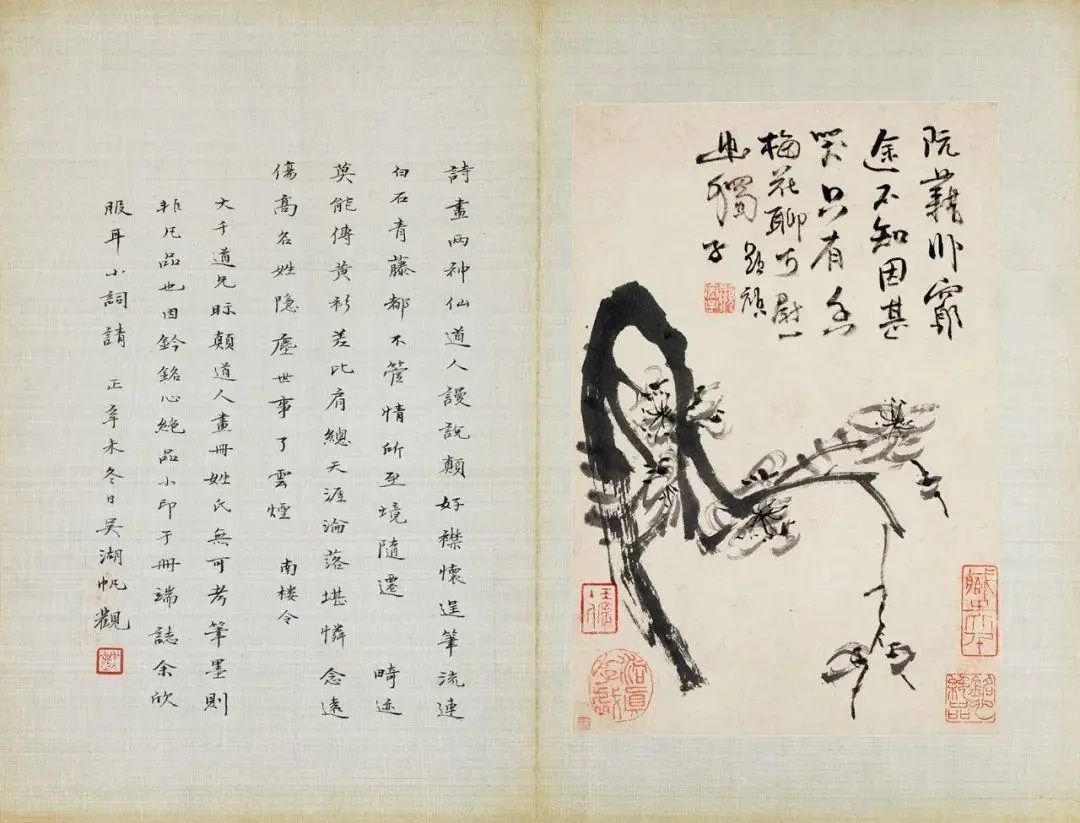 阮藉窮
途不知因甚
哭只有
梅花聊可慰
幽獨
銘心絕品
詩畫兩神仙道人謾說顛好襟懷逞筆流連
白石青藤都不管情所至境隨遷 畸迹
莫能傳黃衫差比肩總天涯淪落堪憐念遠
傷高名姓隱塵世事了雲煙 南楼令
大千道兄眎顛道人畫冊姓氏無可考筆墨則
非凡品也因鈐銘心絕品小印于冊端誌余欣
服耳小詞請 正辛未冬日吳湖帆觀